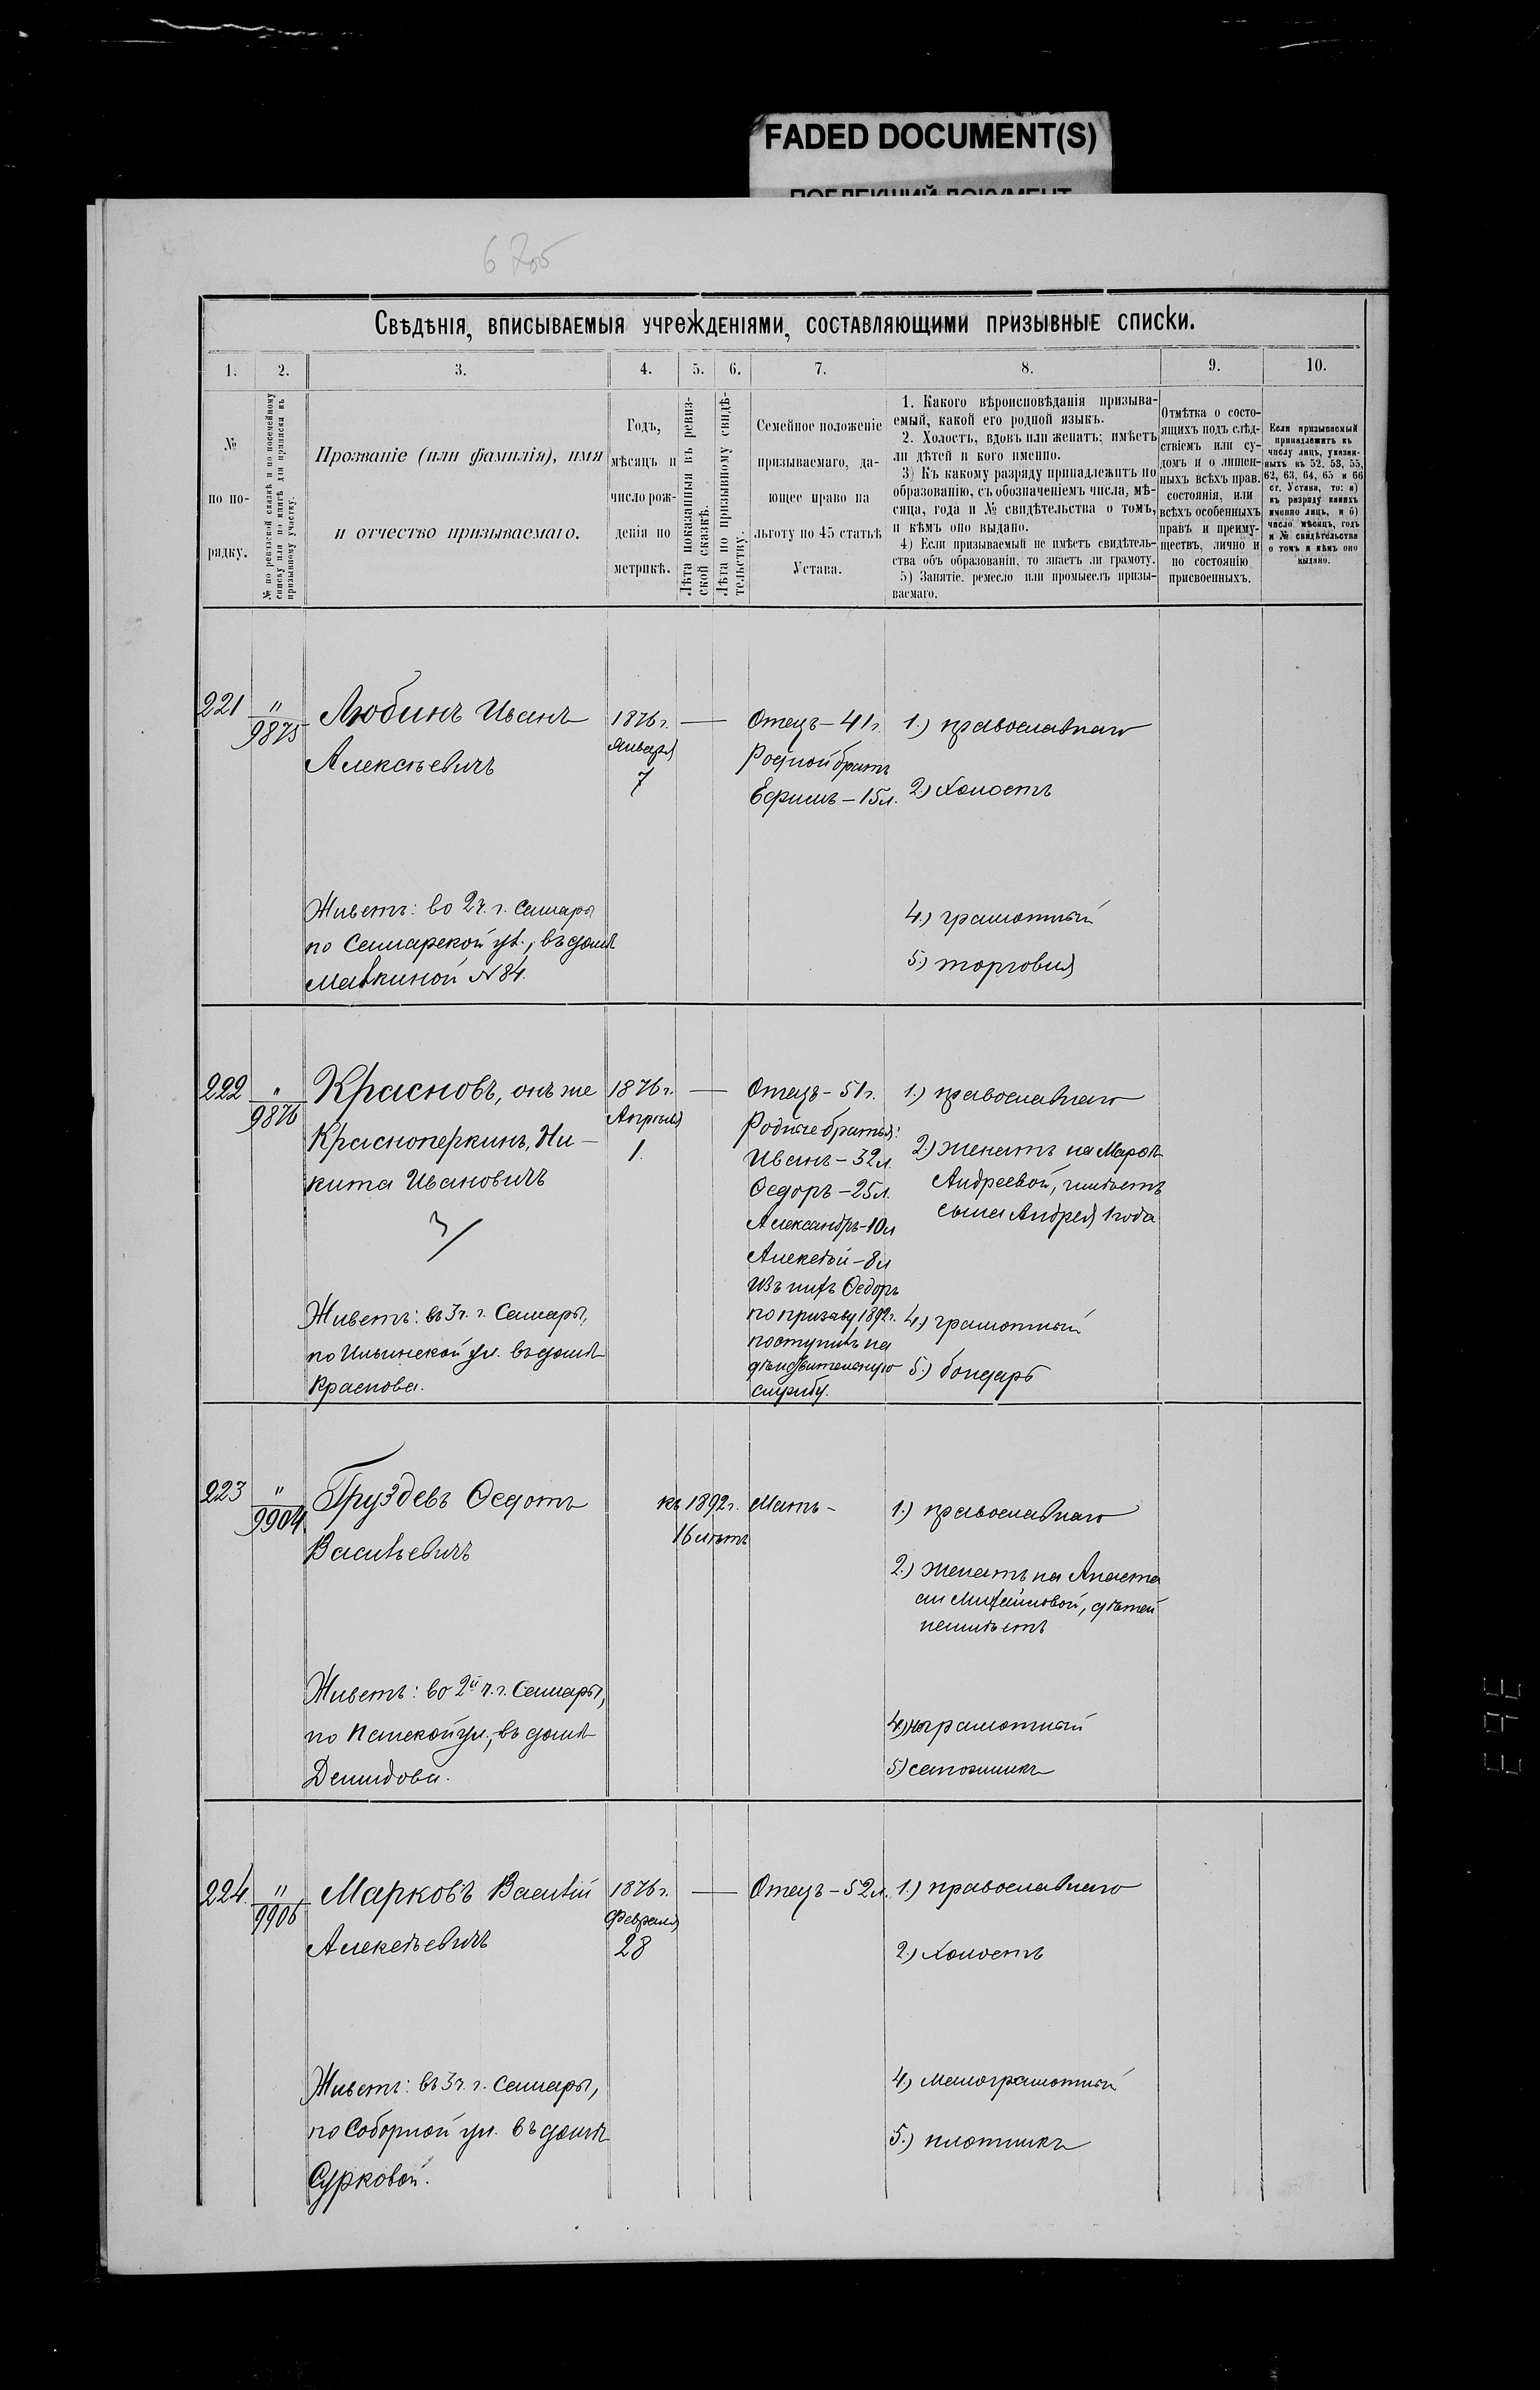 FADED DOCUMENT(S)
ПОБЛЕКШИЙ ДОКУМЕНТ
Свѣдѣнія, вписываемыя учрежденіями, составляющими призывные списки.
1. 2. 3. 4. 5. 6. 7. 8. 9. 10.
№
по по-
рядку.
№ по ревизской сказкѣ и по посемейному
списку или по книгѣ для приписки къ
призывному участку.
Прозваніе (или фамилія), имя
и отчество призываемаго.
Годъ,
мѣсяцъ и
число рож-
денія по
метрикѣ.
Лѣта показанныя въ ревиз-
ской сказкѣ.
Лѣта по призывному свидѣ-
тельству.
Семейное положеніе
призываемаго, да-
ющее право на
льготу по 45 статьѣ
Устава.
1. Какого вѣроисповѣданія призыва-
емый, какой его родной языкъ.
2. Холостъ, вдовъ или женатъ; имѣетъ
ли дѣтей и кого именно.
3) Къ какому разряду принадлежитъ по
образованію, съ обозначеніемъ числа, мѣ-
сяца, года и № свидѣтельства о томъ,
и кѣмъ оно выдано.
4) Если призываемый не имѣетъ свидѣтель-
ства объ образованіи, то знаетъ ли грамоту.
5) Занятіе, ремесло или промыселъ призы-
ваемаго.
Отмѣтка о состо-
ящихъ подъ слѣд-
ствіемъ или су-
домъ и о лишен-
ныхъ всѣхъ прав.
состоянія, или
всѣхъ особенныхъ
правъ и преиму-
ществъ, лично и
по состоянію
присвоенныхъ.
Если призываемый
принадлежитъ къ
числу лицъ, указан-
ныхъ въ 52, 53, 55,
62, 63, 64, 65 и 66
ст. Устава, то: а)
къ разряду какихъ
именно лицъ, и б)
число мѣсяцъ, годъ
и № свидѣтельства
о томъ и кѣмъ оно
выдано.
221
"
9875
Любинъ Иванъ
Алексѣевичъ
Живетъ: во 2 ч. г. Самары
по Самарской ул., въ домѣ
Малкиной № 84.
1876 г.
Января
7
—
Отецъ – 41 г.
Родной братъ
Ефимъ – 15 л.
1.) православнаго
2.) Холостъ
4.) грамотный
5.) торговля
222
"
9876
Красновъ, онъ же
Красноперкинъ, Ни–
кита Ивановичъ
Живетъ: въ 3 ч. г. Самары,
по Ильинской ул. въ домѣ
Краснова.
1876 г.
Апрѣля
1.
—
Отецъ – 51 г.
Родные братья:
Иванъ – 32 л.
Ѳедоръ – 25 л.
Александръ – 10 л
Алексѣй – 8 л
Изъ нихъ Ѳедоръ
по призыву 1892 г.
поступилъ на
дѣйствительную
службу.
1.) православнаго
2.) женатъ на Марѳѣ
Андреевой, имѣетъ
сына Андрея 1 года
4.) грамотный
5.) бондарь
223
"
9904.
Груздевъ Ѳедотъ
Васильевичъ
Живетъ: во 2й ч. г. Самары,
Демидова.
къ 1892 г.
16 лѣтъ
Мать –
1.) православнаго
2.) женатъ на Анаста
сіи Михайловой, дѣтей
неимѣетъ
4) неграмотный
5) сапожникъ
224.
"
9906
Марковъ Василій
Алексѣевичъ
Живетъ: въ 3 ч. г. Самары,
по Соборной ул. въ домѣ
Сурковой.
1876 г.
Февраля
28
—
Отецъ – 52 л.
1.) православнаго
2.) Холостъ
4.) малограмотный
5.) плотникъ